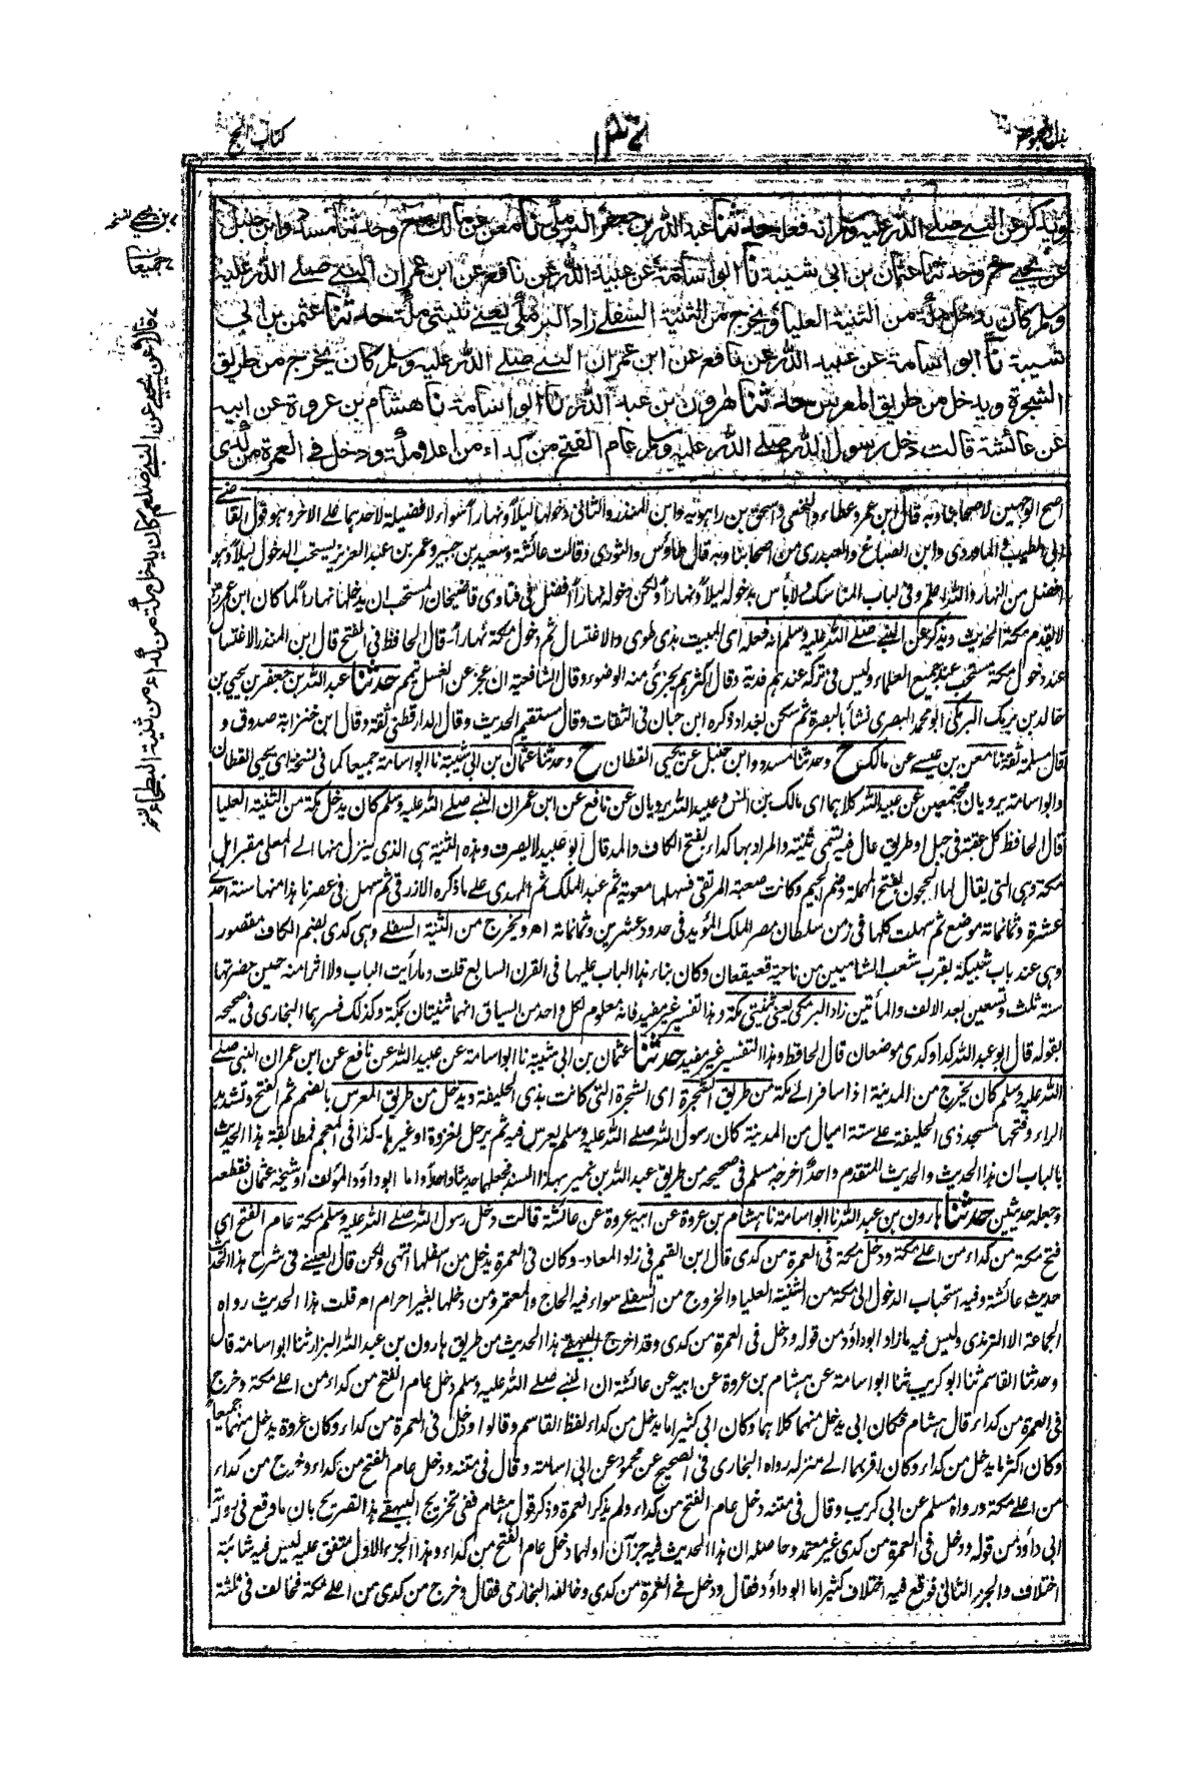 كتاب الحج
ويذكر عن النبي صلى الله عليه وسلم انه فعله حدثنا عبد الله بن جعفر البرمكي نا معن عن مالك ح وحدثنا مسدد وابن حنبل
عن يحيى ح وحدثنا عثمان بن ابي شيبة نا ابو اسامة عن عبيد الله عن نافع عن ابن عمر ان النبي صلى الله عليه
وسلم كان يدخل مكة من الثنية العليا ويخرج من الثنية السفلى زاد البرمكي يعني ثنيتي مكة حدثنا عثمن بن ابي
شيبة نا ابو اسامة عن عبيد الله عن نافع عن ابن عمر ان النبي صلى الله عليه وسلم كان يخرج من طريق
الشجرة ويدخل من طريق المعرس حدثنا هرون بن عبد الله نا ابو اسامة نا هشام بن عروة عن ابيه
عن عائشة قالت دخل رسول الله صلى الله عليه وسلم عام الفتح من كداء من اعلا مكة ودخل في العمرة من كدى
اصح الوجهين لاصحابنا وبه قال ابن عمر وعطاء والنخعي واسحق بن راهويه وابن المنذر والثاني دخولها ليلا ونهارا سواء لا فضيلة لاحدهما على الآخر وهو قول القاضي
ابي الطيب والماوردي وابن الصباغ والعبدري من اصحابنا وبه قال طاؤس والثوري وقالت عائشة وسعيد بن جبير وعمر بن عبد العزيز يستحب الدخول ليلا وهو
افضل من النهار والله اعلم وفي لباب المناسك ولا بأس بدخوله ليلا ونهارا ولكن دخوله نهارا افضل وفي فتاوى قاضيخان المستحب ان يدخلها نهارا لما كان ابن عمر
لا يقدم مكة الحديث ويذكر عن النبي صلى الله عليه وسلم انه فعله اي المبيت بذي طوى والاغتسال ثم دخول مكة نهارا قال الحافظ في الفتح قال ابن المنذر الاغتسال
عند دخول مكة مستحب عند جميع العلماء وليس في تركه عندهم فدية وقال اكثرهم يجزئ منه الوضوء وقال الشافعية ان عجز عن الغسل تيمم حدثنا عبد الله بن جعفر بن يحيى بن
خالد بن برمك البرمكي ابو محمد البصري نشأ بالبصرة ثم سكن بغداد ذكره ابن حبان في الثقات وقال مستقيم الحديث وقال الدارقطني ثقة وقال ابن خنزابة صدوق و
قال مسلمة ثقة نا معن بن عيسى عن مالك ح وحدثنا مسدد وابن حنبل عن يحيى القطان ح وحدثنا عثمان بن ابي شيبة نا ابو اسامة جميعا كما في نسخة اي يحيى القطان
وابو اسامة يرويان مجتمعين عن عبيد الله كلاهما اي مالك بن انس وعبيد الله يرويان عن نافع عن ابن عمر ان النبي صلى الله عليه وسلم كان يدخل مكة من الثنية العليا
قال الحافظ كل عقبة في جبل او طريق عال فيه تسمى ثنية والمراد بها كداء بفتح الكاف والمد قال ابو عبيد لا يصرف وهذه الثنية هي الذي ينزل منها الى المعلى مقبر اهل
مكة وهي التي يقال لها الحجون بفتح المهملة وضم الجيم وكانت صعبة المرتقى فسهلها معوية ثم عبد الملك ثم المهدي على ما ذكره الازرقي ثم سهل في عصرنا هذا منها سنة احدى
عشرة وثمانمائة موضع ثم سهلت كلها في زمن سلطان مصر الملك المؤيد في حدود عشرين وثمانمائة اه ويخرج من الثنية السفلى وهي كدى بضم الكاف مقصور
وهي عند باب شبيكة بقرب شعب الشاميين من ناحية قعيقعان وكان بناء هذا الباب عليها في القرن السابع قلت وما رأيت الباب ولا اثرا منه حين حضرتها
سنة ثلث وتسعين بعد الالف والمأتين زاد البرمكي يعني ثنيتي مكة وهذا التفسير غير مفيد فانه معلوم لكل واحد من السياق انهما ثنيتان بمكة وكذلك فسرهما البخاري في صحيحه
بقوله قال ابو عبد الله كداء وكدى موضعان قال الحافظ وهذا التفسير غير مفيد حدثنا عثمان بن ابي شيبة نا ابو اسامة عن عبيد الله عن نافع عن ابن عمر ان النبي صلى
الله عليه وسلم كان يخرج من المدينة اذا سافر الى مكة من طريق الشجرة اي الشجرة التي كانت بذي الحليفة ويدخل من طريق المعرس بالضم ثم الفتح وتشديد
الراء وفتحها مسجد ذي الحليفة على ستة اميال من المدينة كان رسول الله صلى الله عليه وسلم يعرس فيه ثم يرحل لغزوة او غيرها - كذا في المعجم فمطابقة هذا الحديث
بالباب ان هذا الحديث والحديث المتقدم واحد اخرجه مسلم في صحيحه من طريق عبد الله بن نمير بهذا السند فجعلهما حديثا واحدا واما ابو داؤد المؤلف او شيخه عثمان فقطعه
وجعله حديثين حدثنا هارون بن عبد الله نا ابو اسامة نا هشام بن عروة عن ابيه عروة عن عائشة قالت دخل رسول الله صلى الله عليه وسلم مكة عام الفتح اي
فتح مكة من كداء من اعلى مكة ودخل مكة في العمرة من كدى قال ابن القيم في زاد المعاد - وكان في العمرة يدخل من اسفلها انتهى ولكن قال العيني في شرح هذا الحديث
حديث عائشة وفيه استحباب الدخول الى مكة من الثنية العليا والخروج من السفلى سواء فيه الحاج والمعتمر ومن دخلها بغير احرام اه قلت هذا الحديث رواه
الجماعة الا الترمذي وليس فيه ما زاد ابو داؤد من قوله ودخل في العمرة من كدى وقد اخرج البيهقي هذا الحديث من طريق هارون بن عبد الله البزار ثنا ابو اسامة قال
وحدثنا القاسم ثنا ابو كريب ثنا ابو اسامة عن هشام بن عروة عن ابيه عن عائشة ان النبي صلى الله عليه وسلم دخل عام الفتح من كداء من اعلى مكة وخرج
في العمرة من كداء قال هشام فكان ابي يدخل منهما كلاهما وكان ابي كثيرا ما يدخل من كداء لفظ القاسم وقالوا ودخل في العمرة من كداء وكان عروة يدخل منهما جميعا
وكان اكثر ما يدخل من كداء وكان اقربهما الى منزله رواه البخاري في الصحيح عن محمود عن ابي اسامة وقال في متنه ودخل عام الفتح من كداء وخرج من كداء
من اعلى مكة ورواه مسلم عن ابي كريب وقال في متنه دخل عام الفتح من كداء ولم يذكر العمرة وذكر قول هشام ففي تخريج البيهقي هذا التصريح بان ما وقع في رواية
ابي داؤد من قوله ودخل في العمرة من كدى غير معتمد وحاصله ان هذا الحديث فيه جزآن اولهما دخل عام الفتح من كداء وهذا الجزء الاول متفق عليه ليس فيه شائبة
اختلاف والجزء الثاني فوقع فيه اختلاف كثير اما ابو داؤد فقال ودخل في العمرة من كدى وخالفه البخاري فقال وخرج من كدى من اعلى مكة فخالف في ثلثة
بن يحيى نسخه
جميعا
قالا عن يحيى عن النبي صلعم كان يدخل مكة من كداء من ثنية البطحاء نسخه